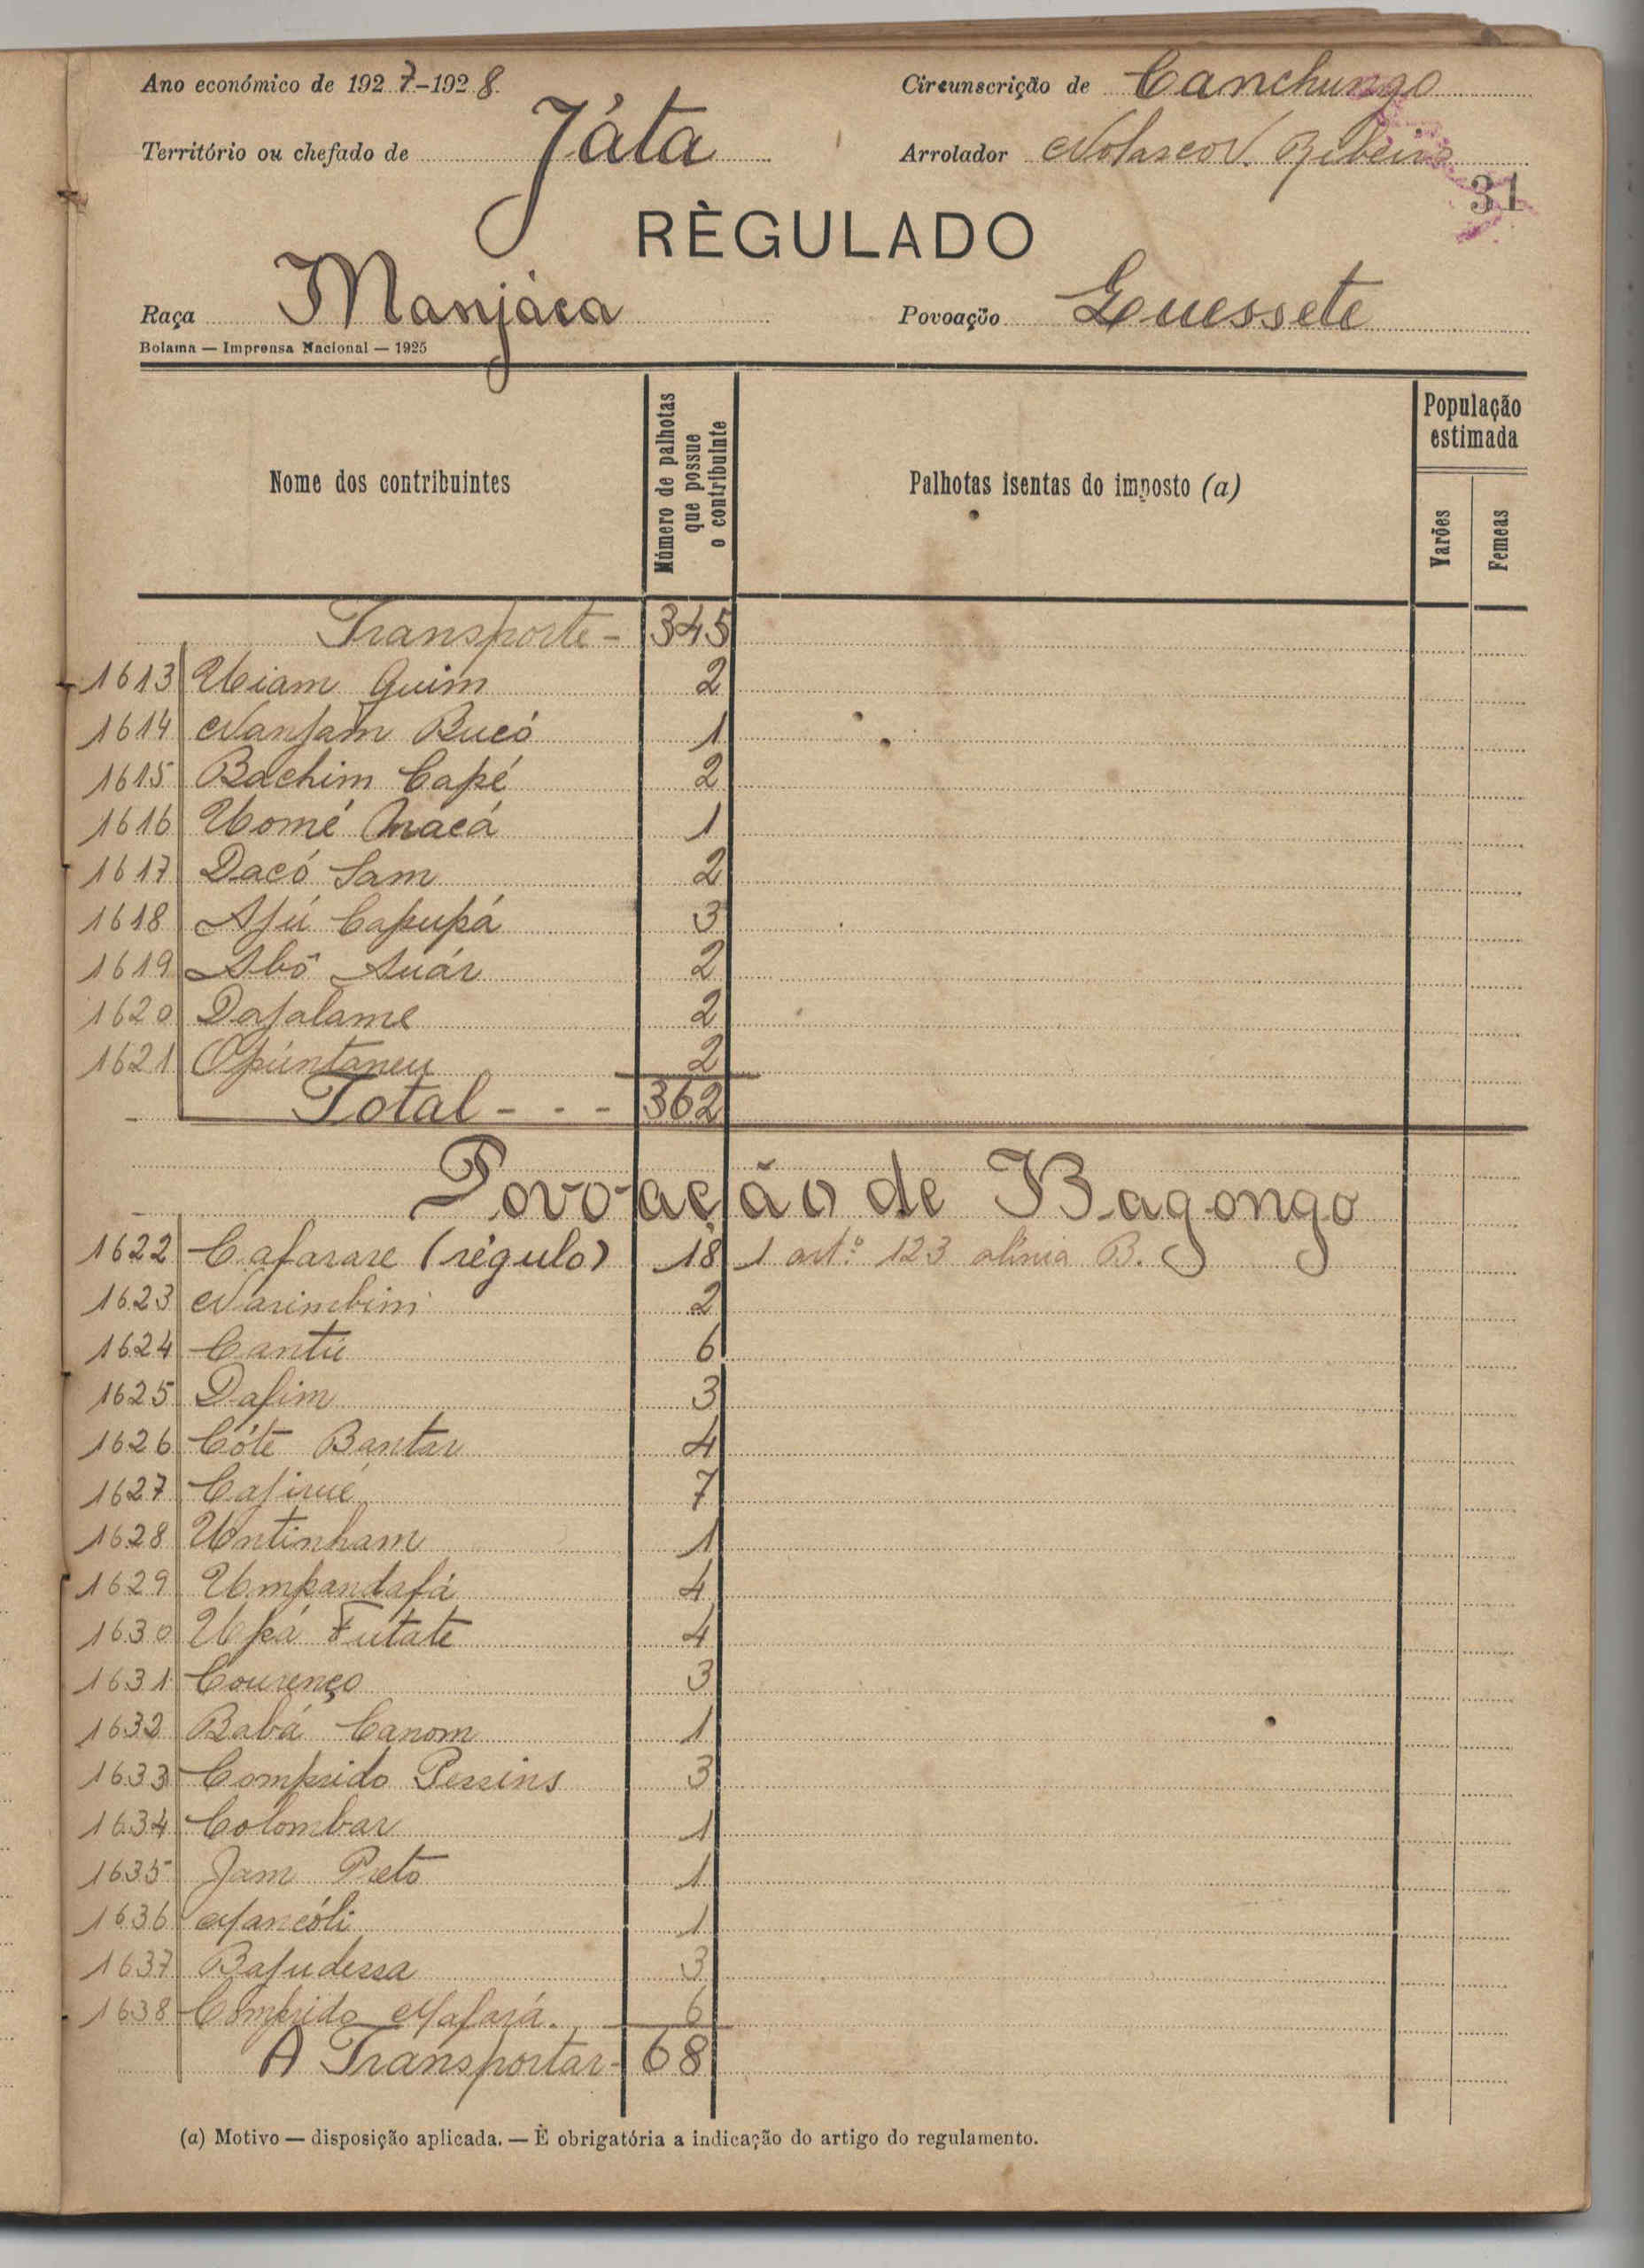 Ano económico de 1927-1928
Circunscrição de Canchungo
Território ou chefado de Játa
Arrolador Nolasco V. Ribeiro
31
RÈGULADO
Raça Manjáca
Povoação
Bolama — Imprensa Nacional — 1925
Nome dos contribuintes
Número de palhotas que possue o contribuinte
Palhotas isentas do imposto (a)
População estimada
Varões
Femeas
Transporte - 345
1613 Uiam Quim 2
1614 Bucó 1
1615 Bachim Capé 2
1616 Uomé 1
1617 Dacó Sam 2
1618 Capupá 3
1619 Abô Suár 2
1620 2
1621 2
Total - - - 362
Povoação de Bagongo
1622 Cafarare (régulo) 18 1 art.º 123 alínia B.
1623 2
1624 Cantú 6
1625 Dafim 3
1626 Cóte Bantar 4
1627 7
1628 Untinham 1
1629 Umpandafá 4
1630 Upá Futate 4
1631 Lourenço 3
1632 Babá Canom 1
1633 Comprido 3
1634 Colombar 1
1635 Jam Preto 1
1636 1
1637 3
1638 Comprido 6
A Transportar - 68
(a) Motivo — disposição aplicada. — È obrigatória a indicação do artigo do regulamento.